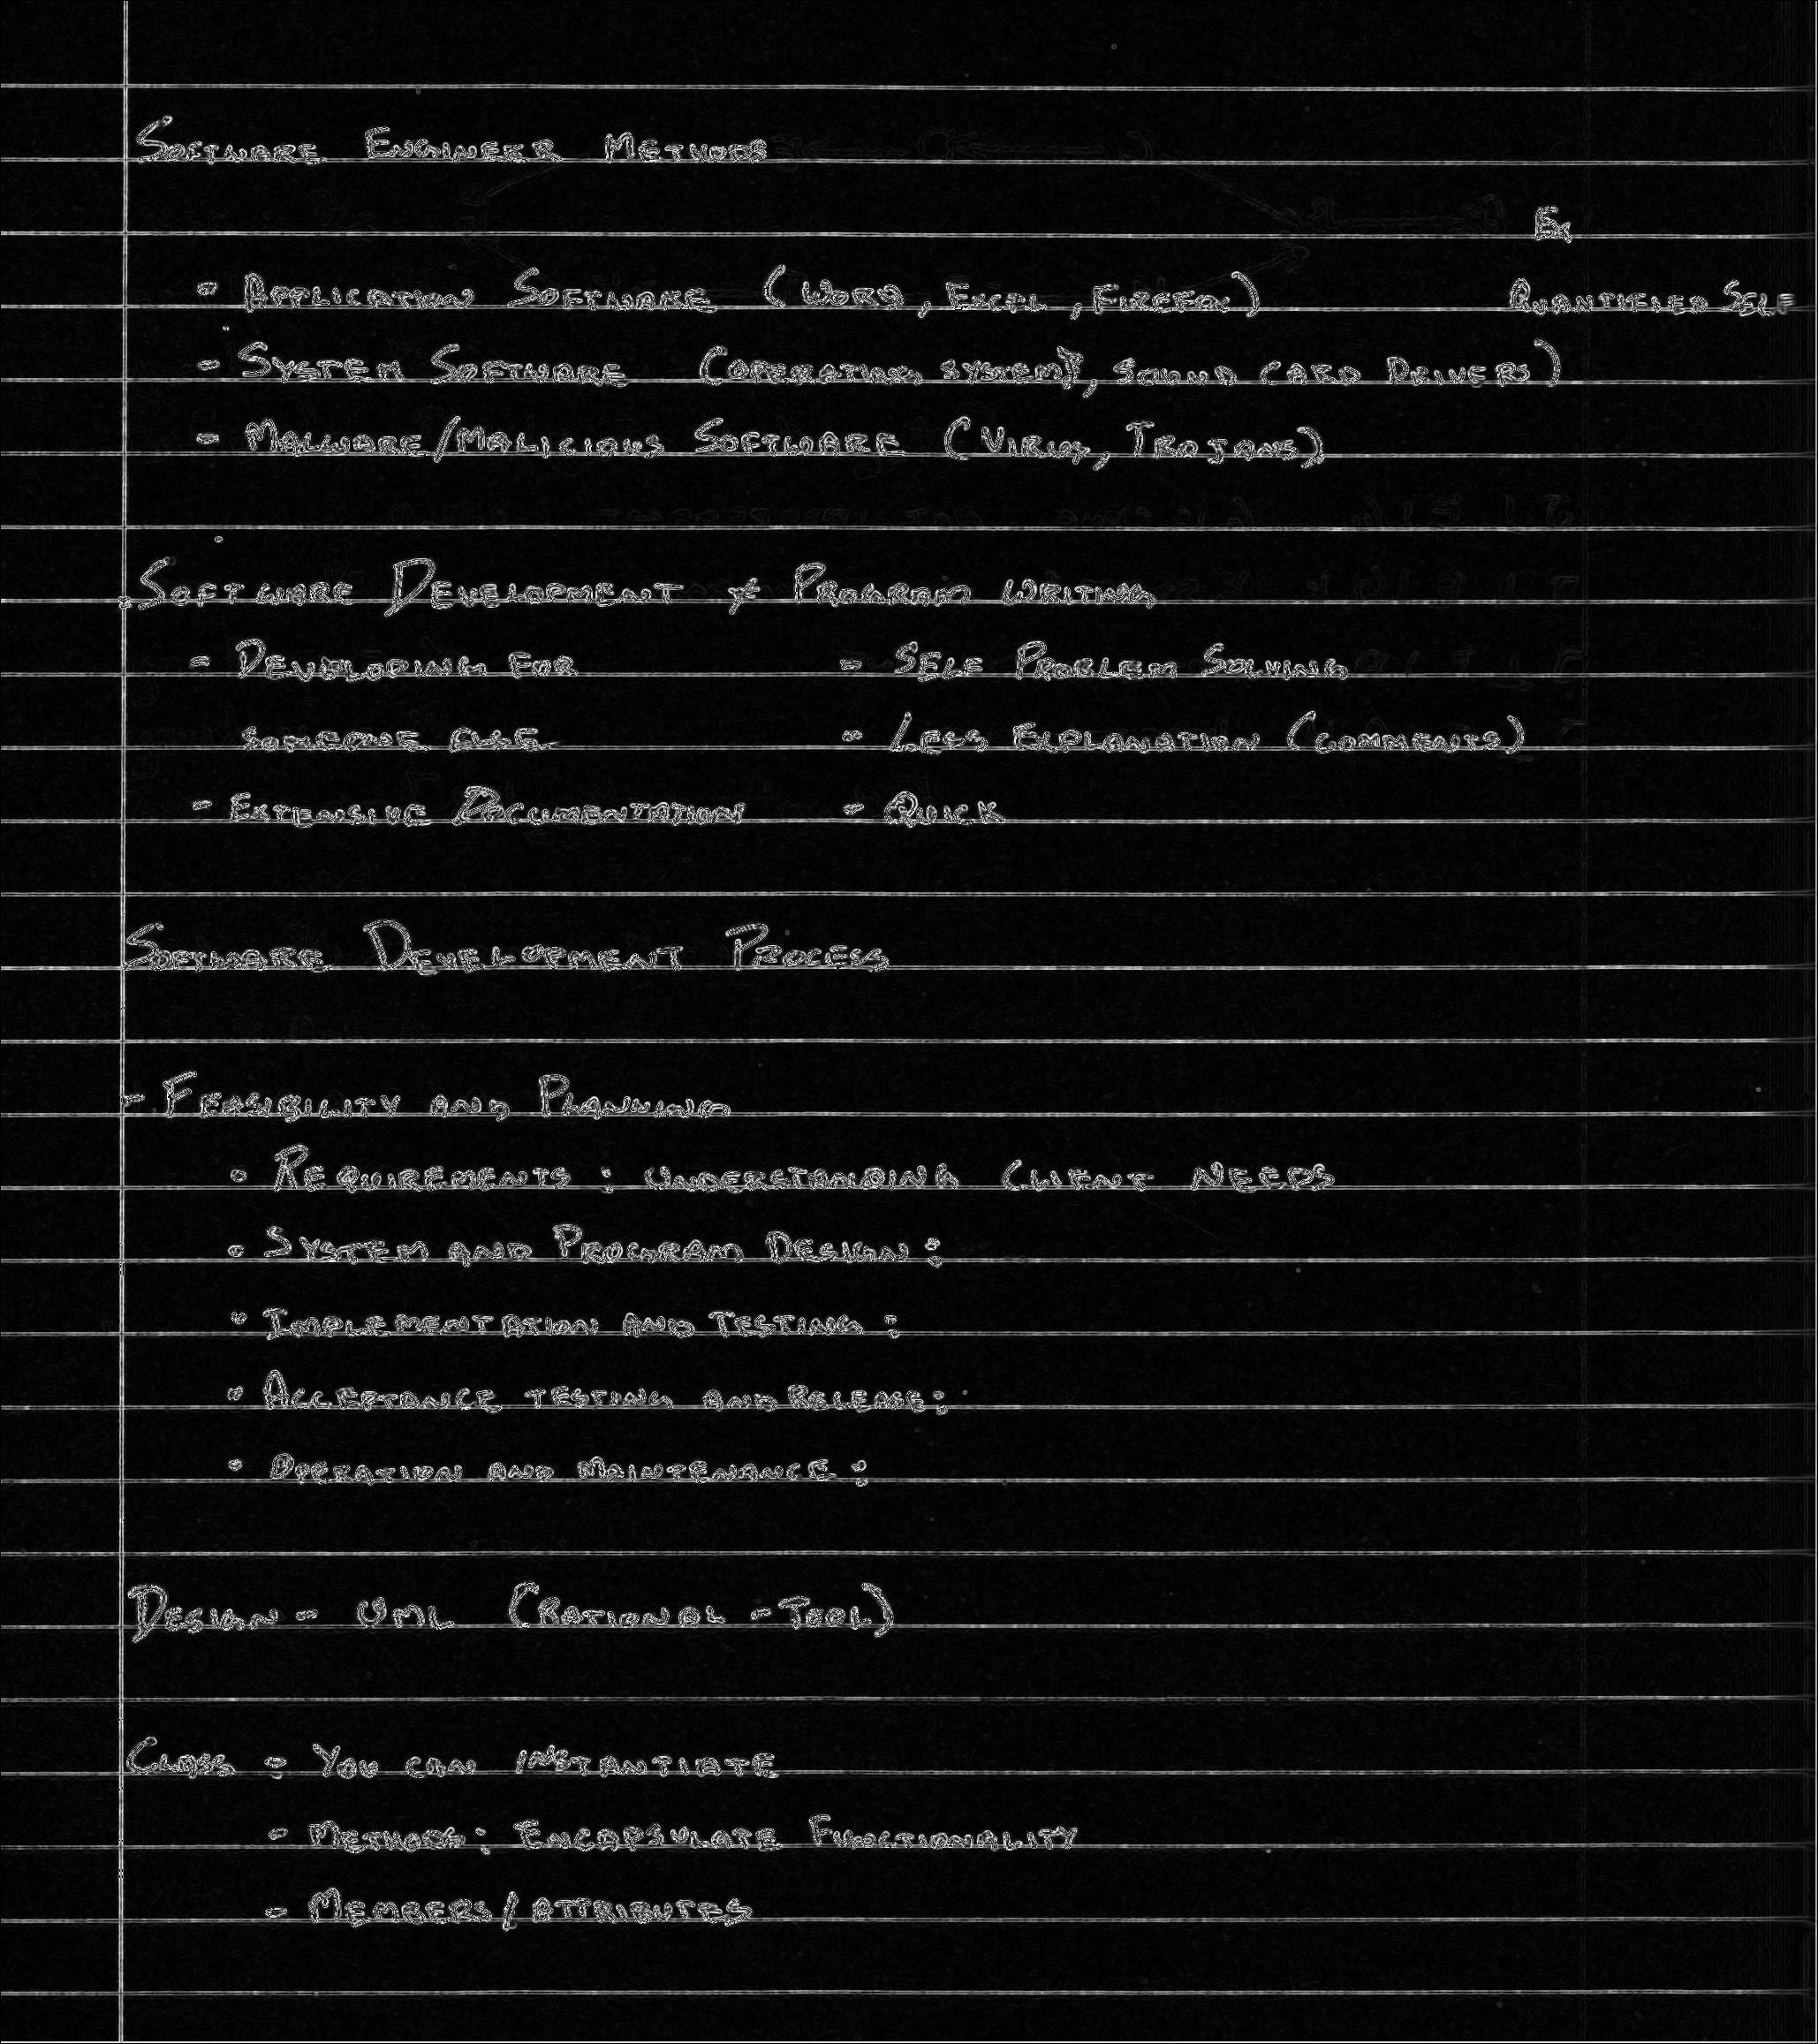 Software Engineer Methods
Ex
- Application Software (Word, Excel, Firefox)
Quantified Self
- System Software (operating system, Sound Card Drivers)
- Malware/Malicious Software (Virus, Trojans)
Software Development ≠ Program Writing
- Developing for
- Self Problem Solving
someone else
- Less Explanation (comments)
- Extensive Documentation
- Quick
Software Development Process
- Feasibility and Planning
• Requirements : Understanding Client Needs
• System and Program Design :
• Implementation and Testing :
• Acceptance testing and Release :
• Operation and Maintenance :
Design - UML (Rational - Tool)
Class : You can instantiate
- Methods : Encapsulate Functionality
- Members / Attributes